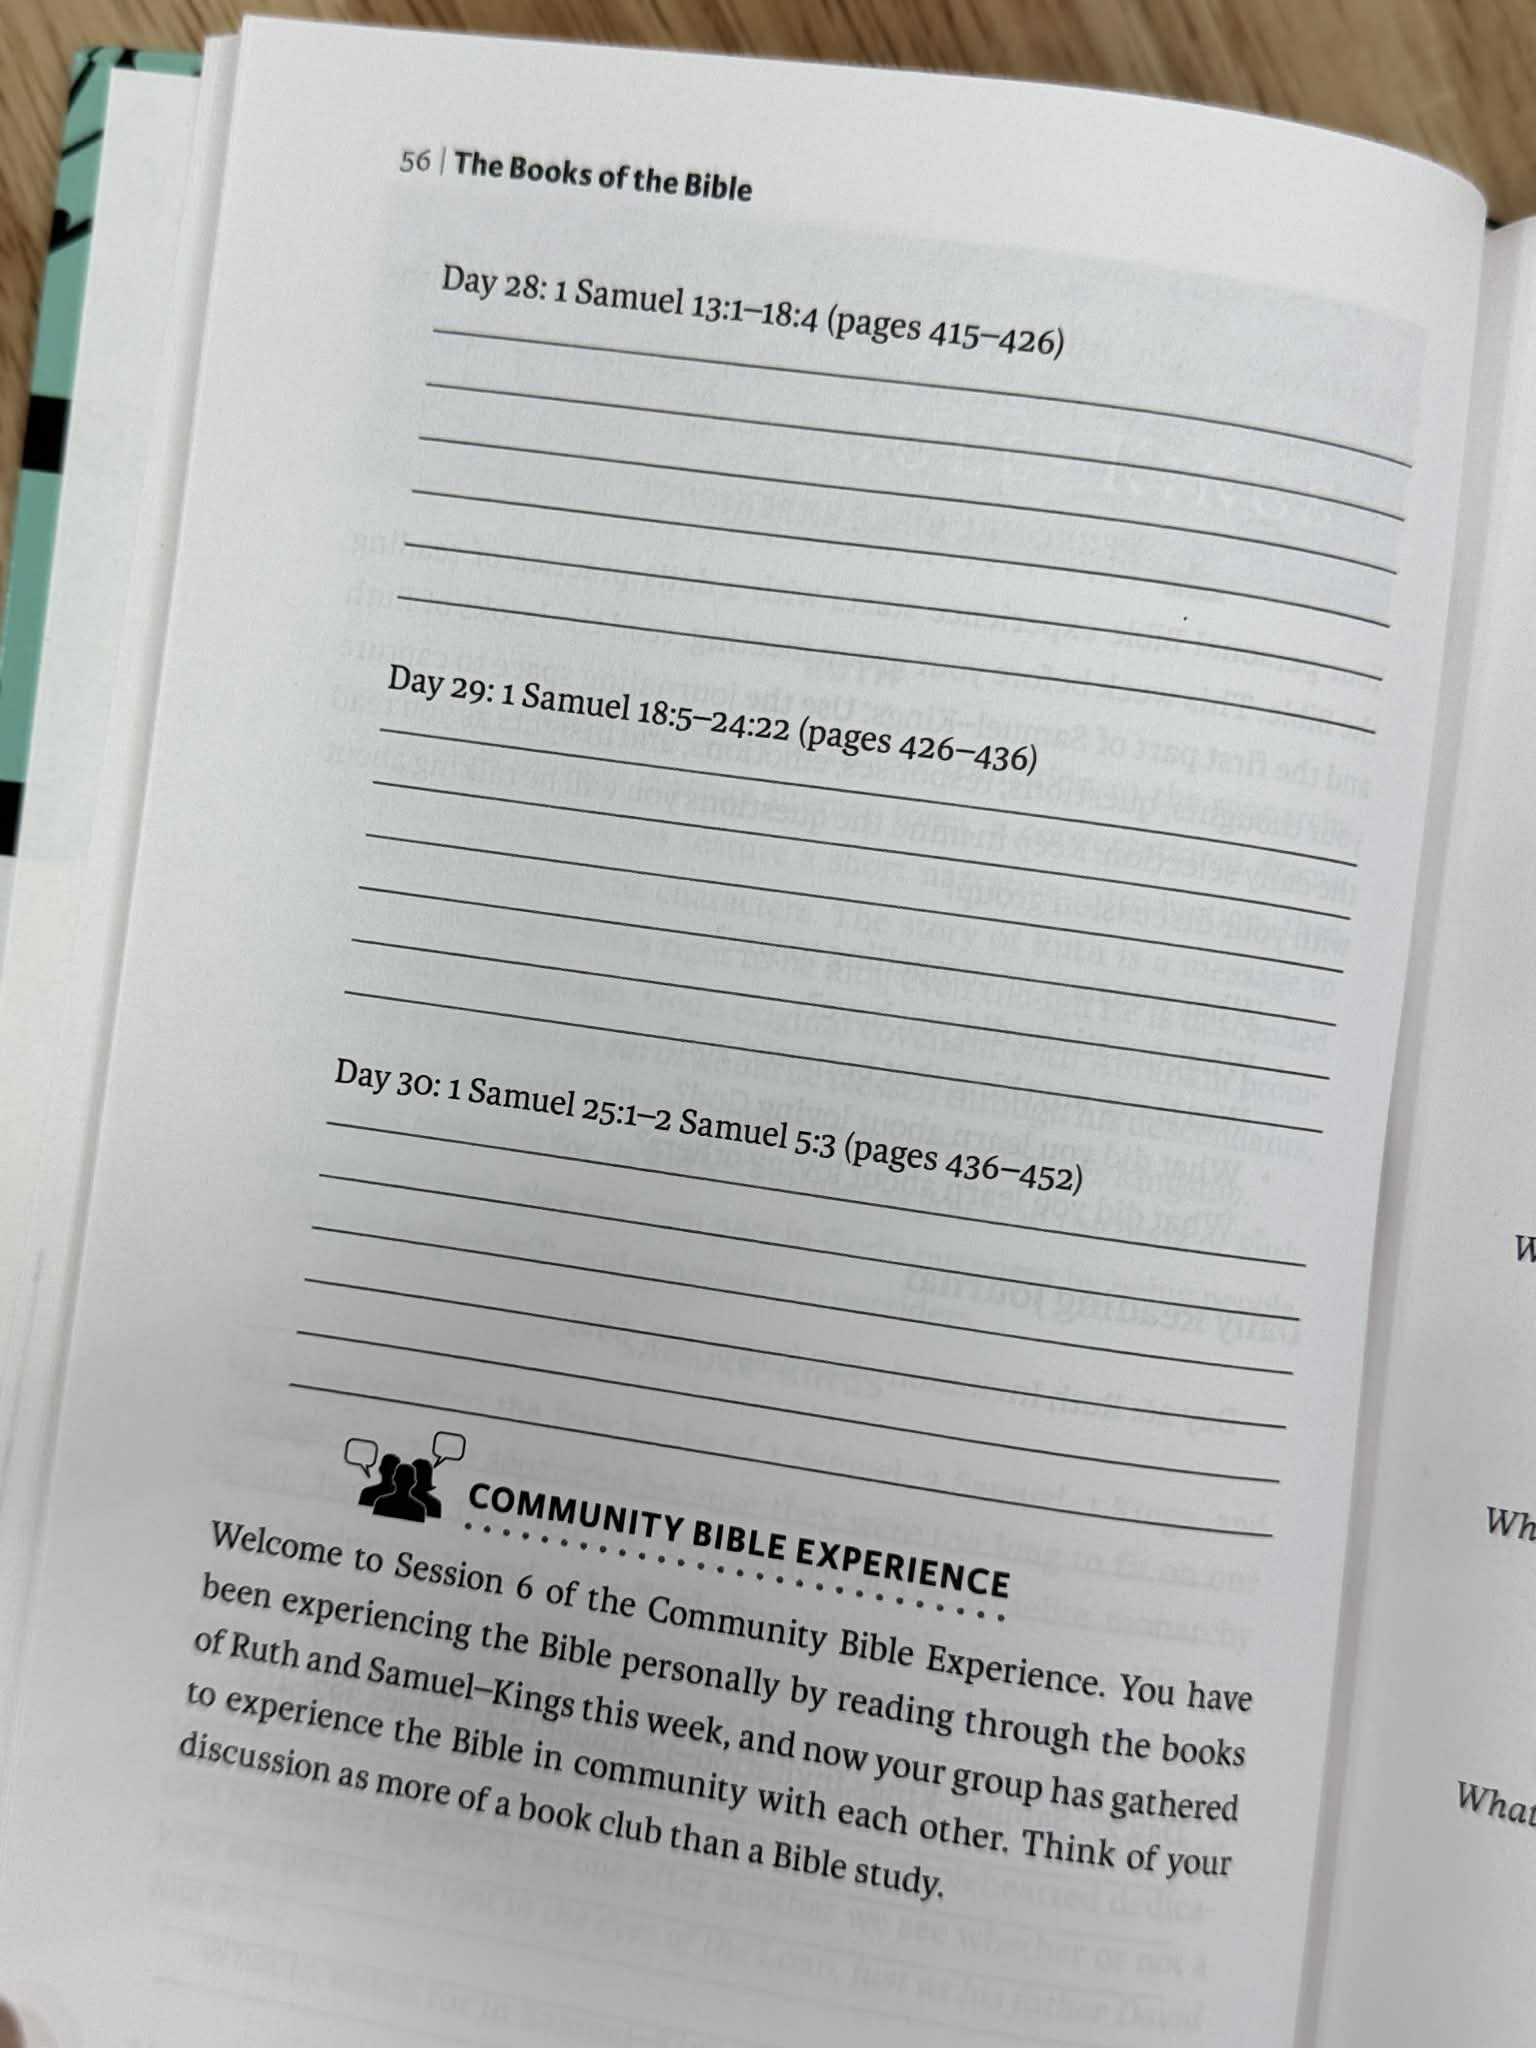 56 | The Books of the Bible
Day 28: 1 Samuel 13:1–18:4 (pages 415–426)
Day 29: 1 Samuel 18:5–24:22 (pages 426–436)
Day 30: 1 Samuel 25:1–2 Samuel 5:3 (pages 436–452)
COMMUNITY BIBLE EXPERIENCE
Welcome to Session 6 of the Community Bible Experience. You have
been experiencing the Bible personally by reading through the books
of Ruth and Samuel–Kings this week, and now your group has gathered
to experience the Bible in community with each other. Think of your
discussion as more of a book club than a Bible study.
What